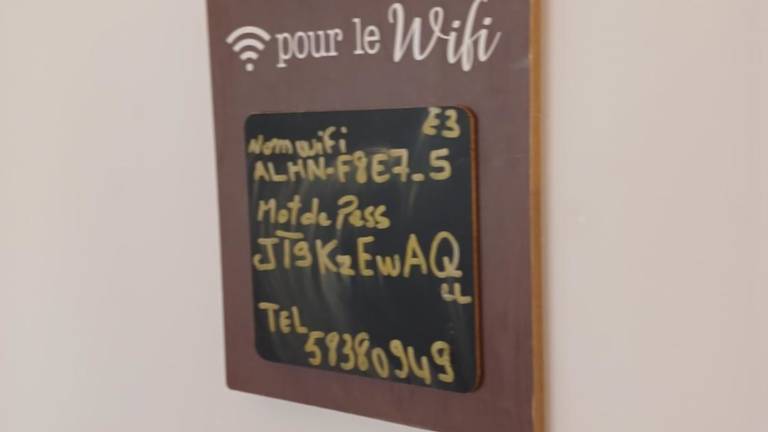 pour le Wifi
E3
Nom wifi
ALHN-F8E7_5
Mot de Pass
JT9KzEwAQ
LL
TEL
59380949